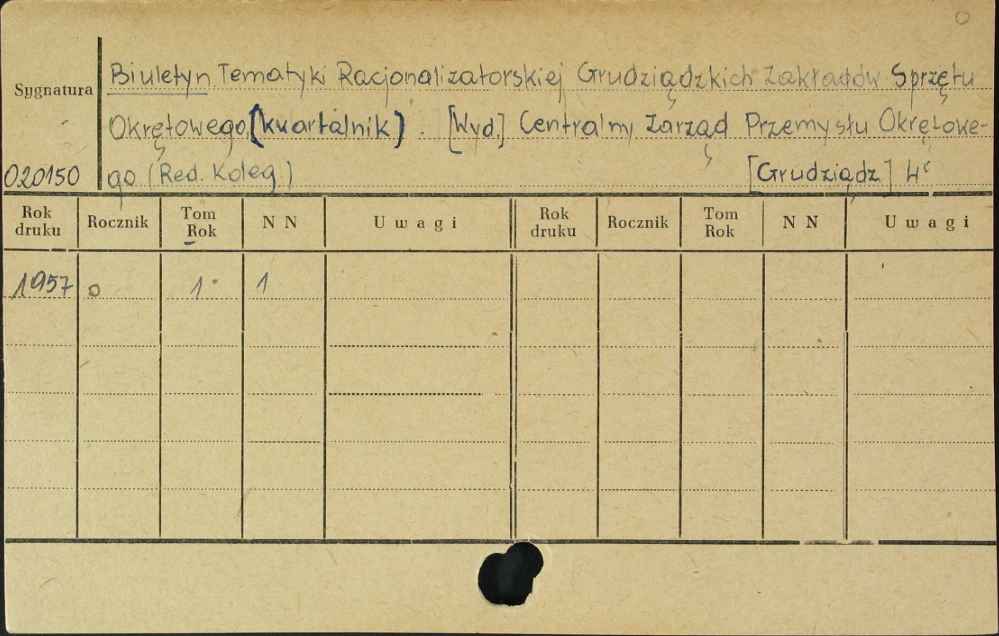 Sygnatura
020150
Biuletyn Tematyki Racjonalizatorskiej Grudziądzkich Zakładów Sprzętu
Okrętowego [kwartalnik]. [Wyd.] Centralny Zarząd Przemysłu Okrętowe-
go (Red. Koleg.) [Grudziądz] 4°
Rok druku Rocznik Tom Rok N N Uwagi Rok druku Rocznik Tom Rok N N Uwagi
1957 o 1 1